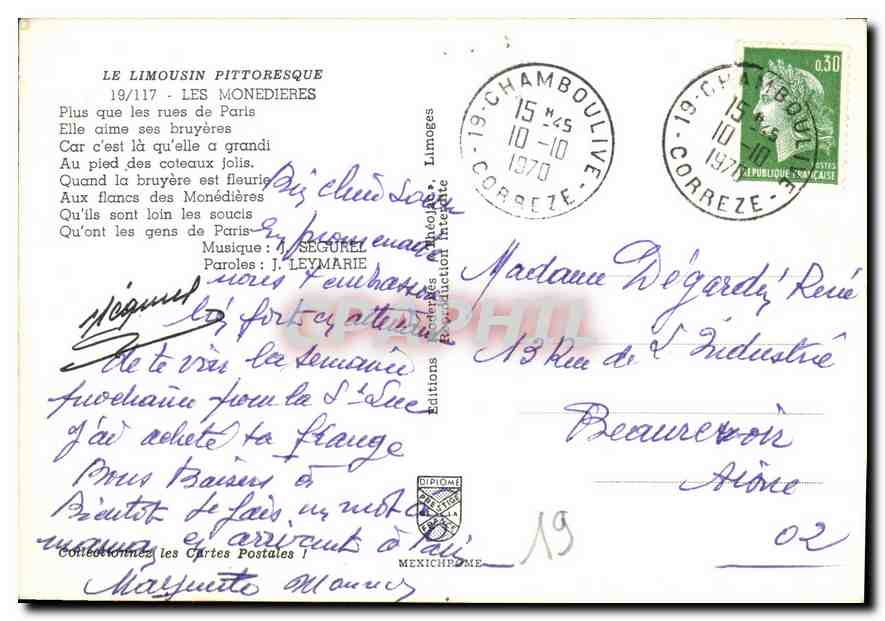 LE LIMOUSIN PITTORESQUE
19/117 - LES MONEDIERES
Plus que les rues de Paris
Elle aime ses bruyères
Car c'est là qu'elle a grandi
Au pied des coteaux jolis.
Quand la bruyère est fleurie
Aux flancs des Monédières
Qu'ils sont loin les soucis
Qu'ont les gens de Paris
Musique : J. SEGUREL
Paroles : J. LEYMARIE
En promenade
nous t'embrassons
bien fort en attendant
de te voir la semaine
prochaine pour la St Luc
J'ai acheté ta frange
Bons Baisers à
Bientôt Je fais un mot à
maman en arrivant à Paris
Marguerite
Collectionnez les Cartes Postales !
Editions Modernes « Théojac », Limoges
Reproduction Interdite
DIPLOME
PRESTIGE
DE LA
FRANCE
MEXICHROME
19 - CHAMBOULIVE - CORREZE
15 H 45
10 -10
1970
19 - CHAMBOULIVE - CORREZE
15 H 45
10 -10
1970
0,30
POSTES
REPUBLIQUE FRANÇAISE
Madame Dégardin René
13 Rue de L'Industrie
Beaurevoir
Aisne
02
19
CPAPHIL